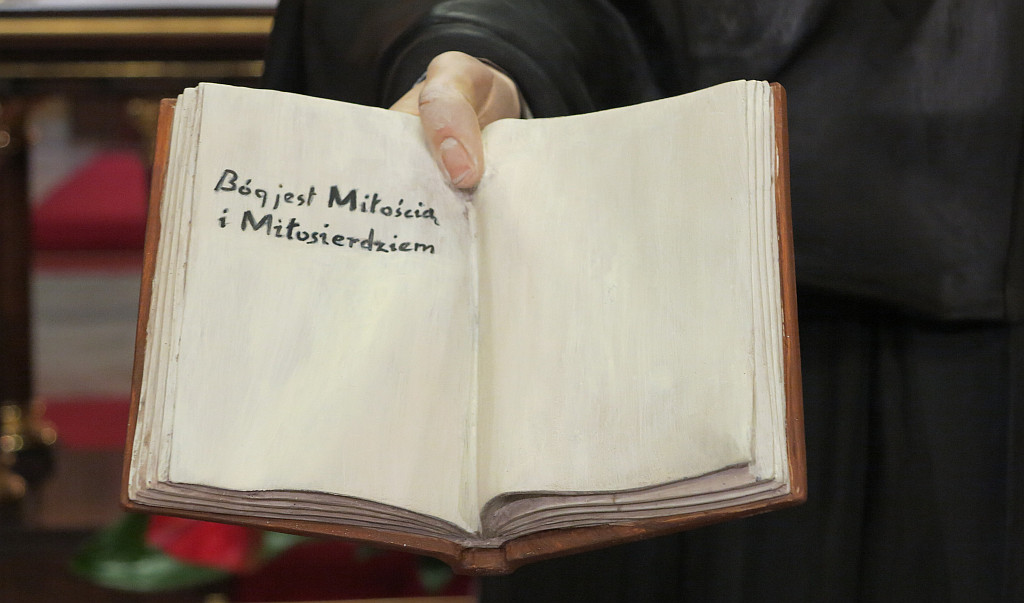 Bóg jest Miłością
i Miłosierdziem